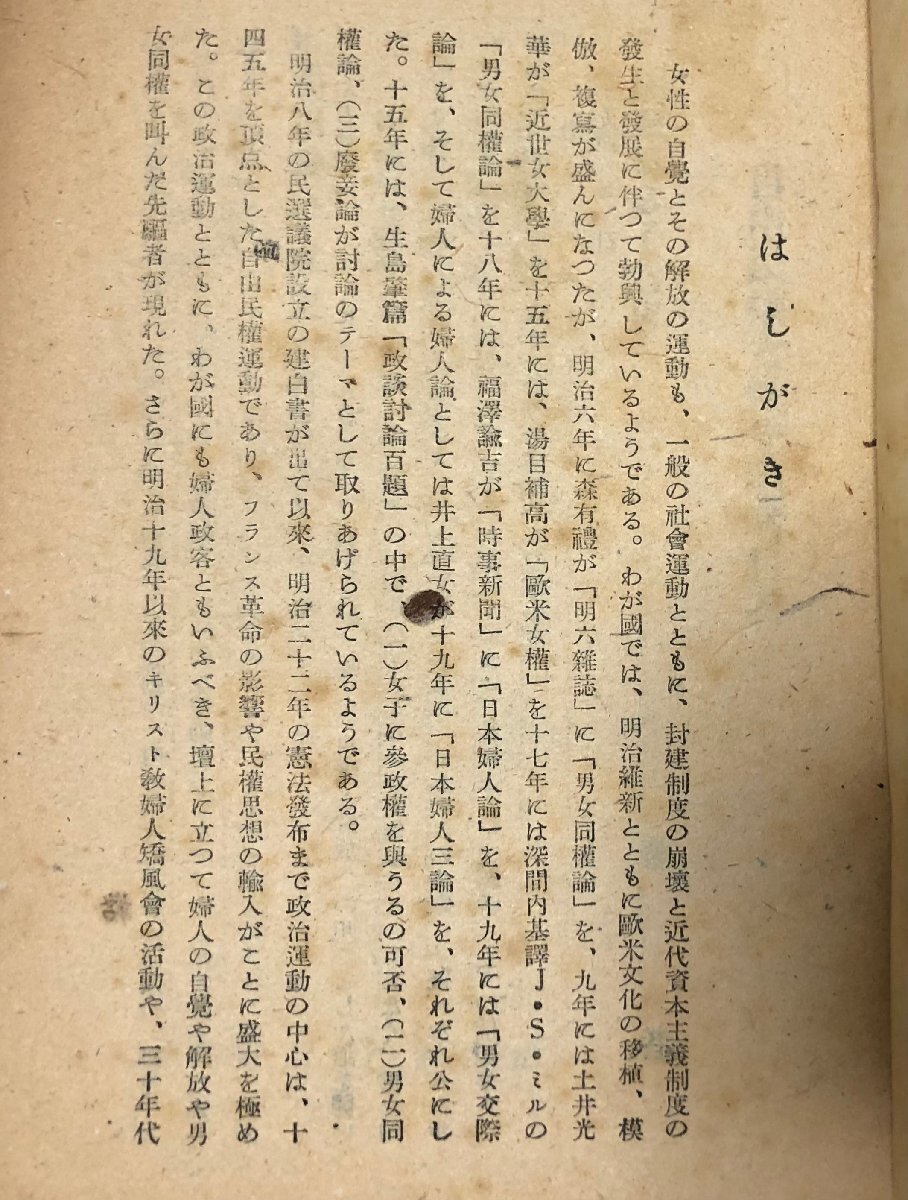 はしがき
女性の自覺とその解放の運動も、一般の社會運動とともに、封建制度の崩壞と近代資本主義制度の
發生と發展に伴つて勃興しているようである。わが國では、明治維新とともに歐米文化の移植、模
倣、複寫が盛んになつたが、明治六年に森有禮が「明六雜誌」に「男女同權論」を、九年には土井光
華が「近世女大學」を十五年には、湯目補高が「歐米女權」を十七年には深間内基譯J・S・ミルの
「男女同權論」を十八年には、福澤諭吉が「時事新聞」に「日本婦人論」を、十九年には「男女交際
論」を、そして婦人による婦人論としては井上直女が十九年に「日本婦人三論」を、それぞれ公にし
た。十五年には、生島肇篇「政談討論百題」の中で、(一)女子に參政權を與うるの可否、(二)男女同
權論、(三)廢妾論が討論のテーマとして取りあげられているようである。
明治八年の民選議院設立の建白書が出て以來、明治二十二年の憲法發布まで政治運動の中心は、十
四五年を頂点とした自由民權運動であり、フランス革命の影響や民權思想の輸入がことに盛大を極め
た。この政治運動とともに、わが國にも婦人政客ともいふべき、壇上に立つて婦人の自覺や解放や男
女同權を叫んだ先驅者が現れた。さらに明治十九年以來のキリスト教婦人矯風會の活動や、三十年代